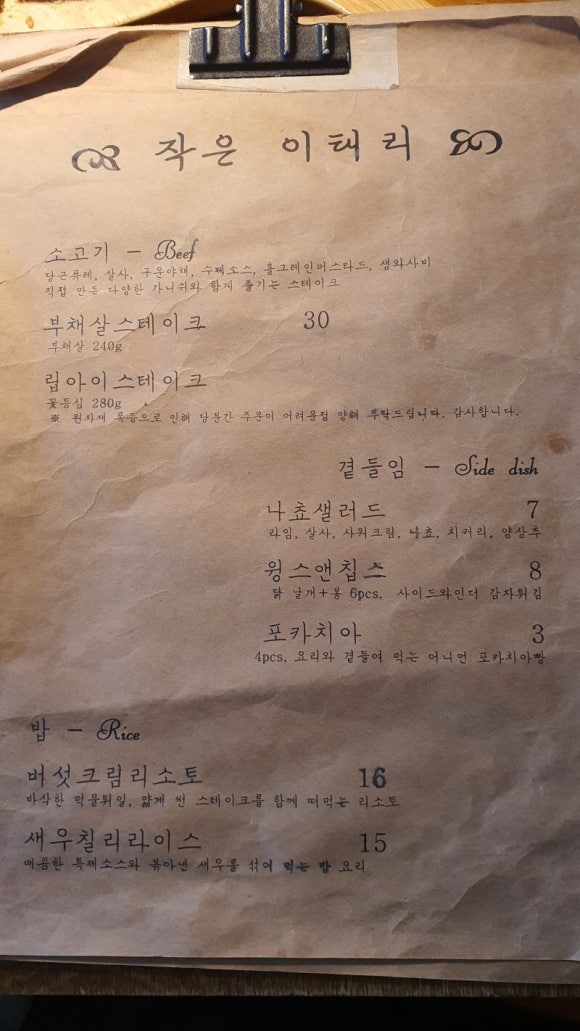 작은 이태리
소고기 - Beef
당근퓨레, 살사, 구운야채, 수제소스, 홀그레인머스타드, 생와사비
직접 만든 다양한 가니쉬와 함께 즐기는 스테이크
부채살스테이크 30
부채살 240g
립아이스테이크
꽃등심 280g
※ 원자재 폭등으로 인해 당분간 주문이 어려운점 양해 부탁드립니다. 감사합니다.
곁들임 - Side dish
나쵸샐러드 7
라임, 살사, 사워크림, 나쵸, 치커리, 양상추
윙스앤칩스 8
닭 날개+봉 6pcs, 사이드와인더 감자튀김
포카치아 3
4pcs, 요리와 곁들여 먹는 어니언 포카치아빵
밥 - Rice
버섯크림리소토 16
바삭한 먹물튀일, 얇게 썬 스테이크를 함께 떠먹는 리소토
새우칠리라이스 15
매콤한 특제소스와 볶아낸 새우를 섞어 먹는 밥 요리